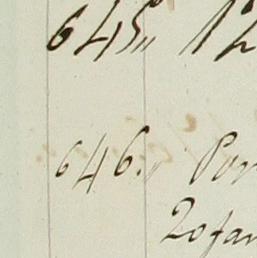 645 12
646. Por
20 fan